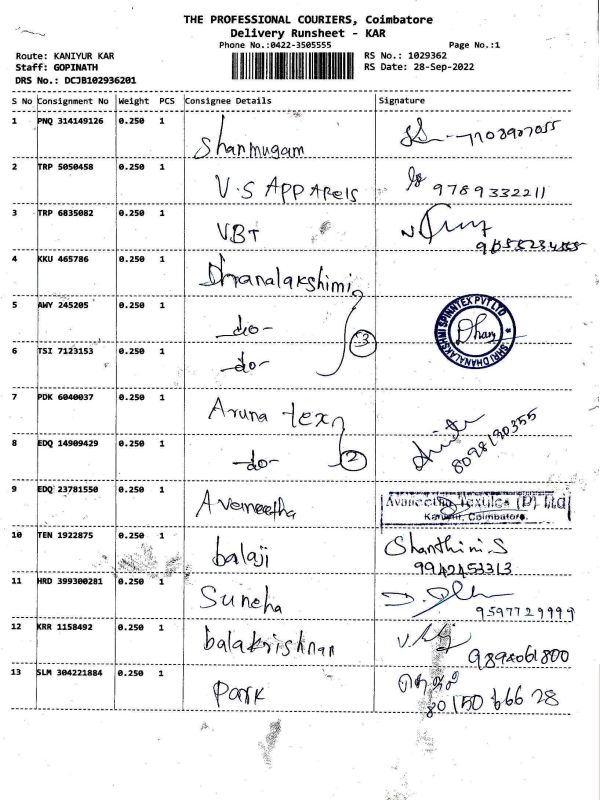 THE PROFESSIONAL COURIERS, Coimbatore
Delivery Runsheet - KAR
Phone No.:0422-3505555 Page No.:1
Route: KANIYUR KAR RS No.: 1029362
Staff: GOPINATH RS Date: 28-Sep-2022
DRS No.: DCJB102936201
S No Consignment No Weight PCS Consignee Details Signature
1 PNQ 314149126 0.250 1 Shanmugam
2 TRP 5050458 0.250 1 V.S APPARels 9789332211
3 TRP 6835082 0.250 1 VBT
4 KKU 465786 0.250 1 Dhanalakshimi
5 AWY 245205 0.250 1 -do- SHRI DHANALAKSHMI SPINNTEX PVT LTD
6 TSI 7123153 0.250 1 -do- 3
7 PDK 6040037 0.250 1 Aruna tex 8098190355
8 EDQ 14909429 0.250 1 -do- 2
9 EDQ 23781550 0.250 1 Avaneetha Avaneetha Textiles (P) Ltd
Coimbatore.
10 TEN 1922875 0.250 1 balaji Shanthini.S
9942453313
11 HRD 399300281 0.250 1 Suneha 9597729999
12 KRR 1158492 0.250 1 balakrishnan
13 SLM 304221884 0.250 1 Park 80150 66628